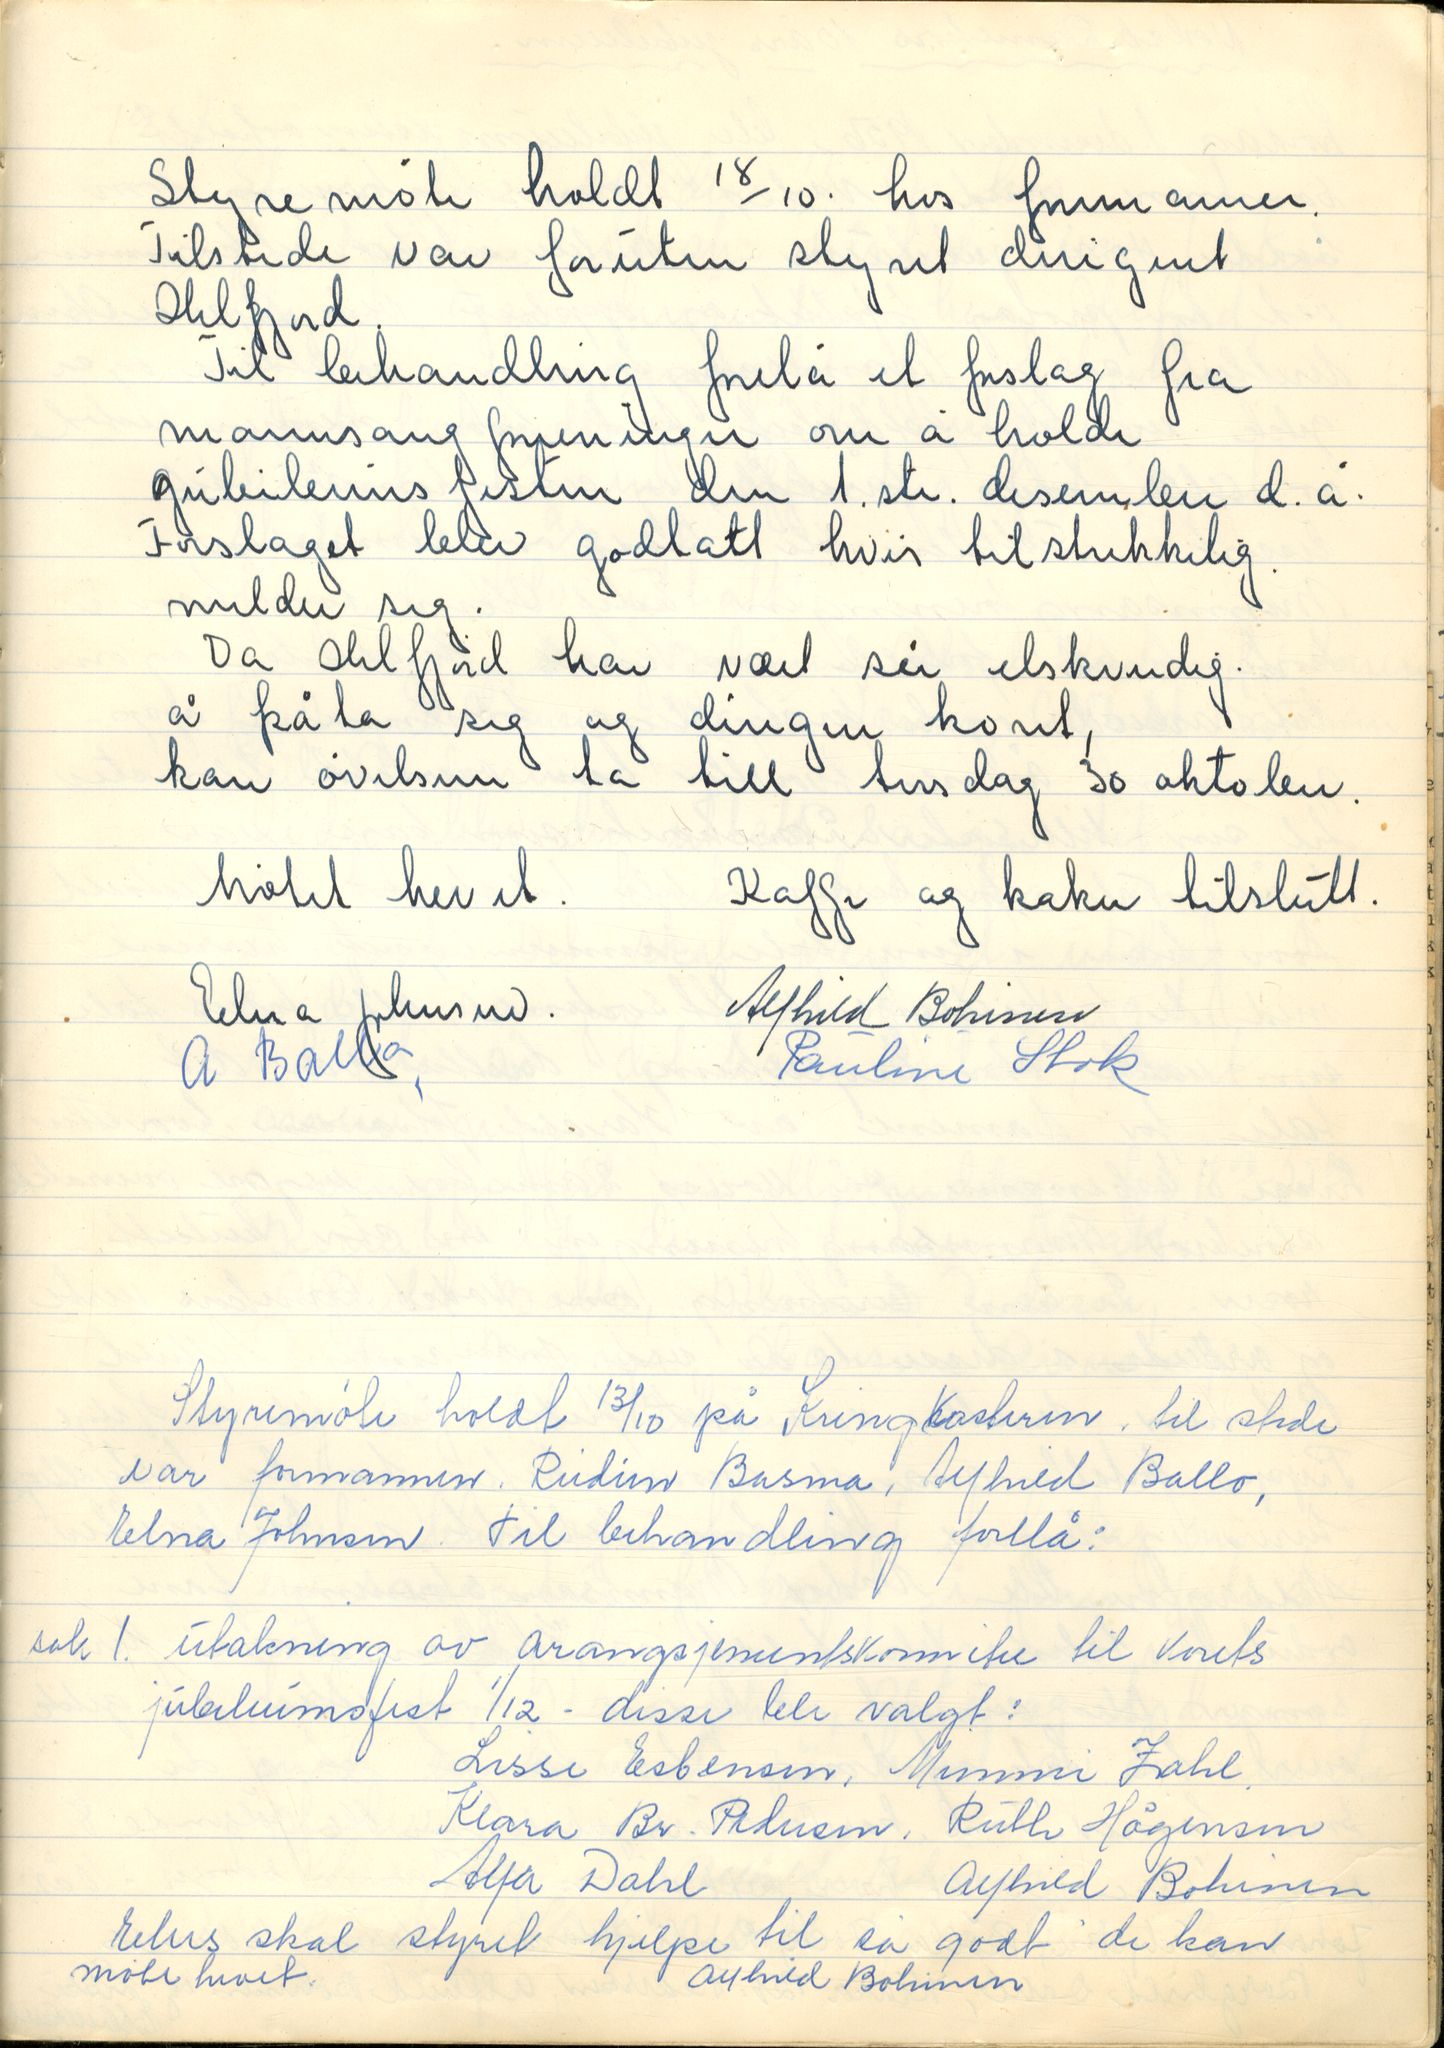 Styremöte holdt 18/10. hos formannen.
Tilstede var foruten styret dirigent
Skelfjord.
Til behandling forelå et forslag fra
mannsangforeningen om å holde
jubileumsfesten den 1.ste. desember d.å.
Forslaget blev godtatt hvis tilstrekkelig.
melder seg.
Da Skelfjord har vært så elskverdig.
å påta seg og dirigere koret,
kan övelsene ta till tirsdag 30 oktober.
Mötet hevet. Kaffe og kaker tilslutt.
Edna Johnsen. Alfhild Bohinen
A Ballo, Pauline Stok
Styremöte holdt 13/10 på Kringkasteren. til stede
var formannen. Basma, Alfhild Ballo,
Edna Johnsen. Til behandling forelå:
sak 1. utakning av arangsjementskomite til korets
jubileumsfest 1/12 - disse ble valgt:
Lisse Esbensen, Mimmi Zahl.
Klara Br. Pedersen. Ruth Hågensen
Alfa Dahl Alfhild Bohinen
Ellers skal styret hjelpe til så godt de kan
möte hevet. Alfhild Bohinen